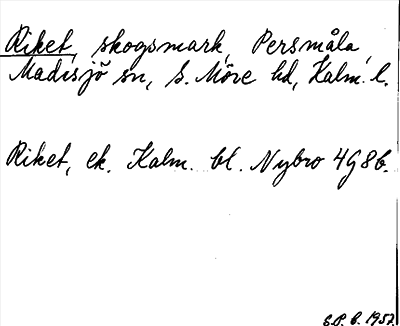 Riket, skogsmark, Persmåla,
Madesjö sn, S. Möre hd, Kalm. l.
Riket, ek. Kalm. bl. Nybro 4G8b.
E.P. b. 1957.